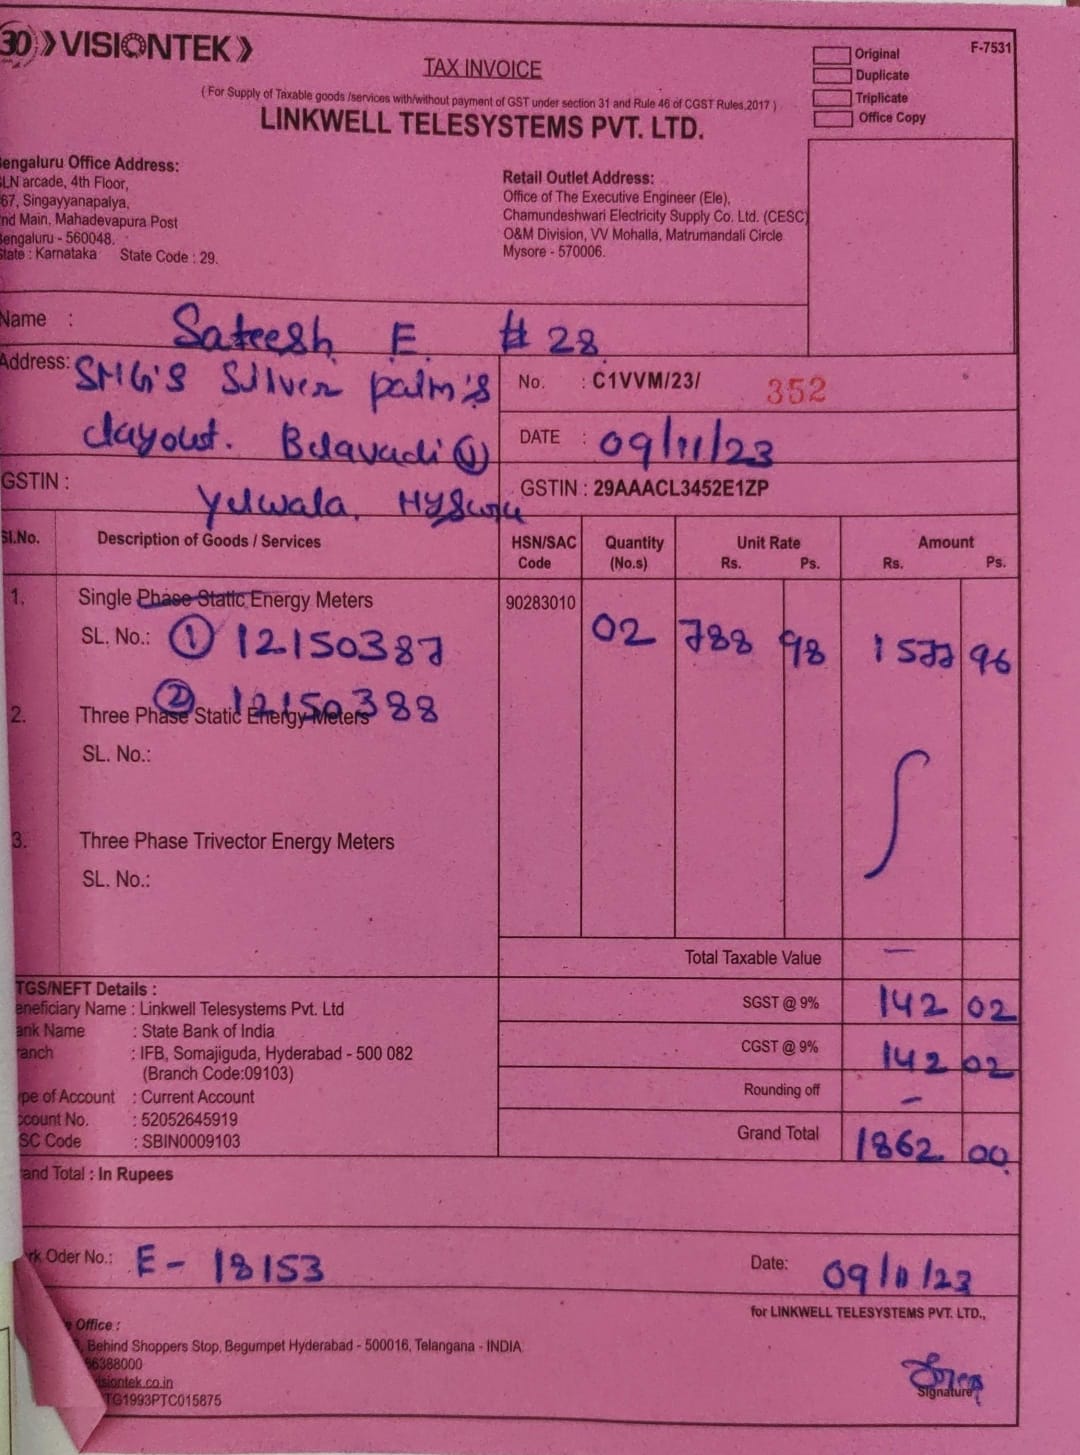 30 VISIONTEK
F-7531
TAX INVOICE
Original
Duplicate
Triplicate
Office Copy
( For Supply of Taxable goods /services with/without payment of GST under section 31 and Rule 46 of CGST Rules,2017 )
LINKWELL TELESYSTEMS PVT. LTD.
engaluru Office Address:
LN arcade, 4th Floor,
67, Singayyanapalya,
nd Main, Mahadevapura Post
engaluru - 560048.
State : Karnataka State Code : 29.
Retail Outlet Address:
Office of The Executive Engineer (Ele),
Chamundeshwari Electricity Supply Co. Ltd. (CESC)
O&M Division, VV Mohalla, Matrumandali Circle
Mysore - 570006.
Name : Sateesh E. # 28
Address: SMG'S Silver palm's
Layout. Belavadi
Yelwala,
No. : C1VVM/23/ 352
DATE : 09/11/23
GSTIN :
GSTIN : 29AAACL3452E1ZP
Sl.No. Description of Goods / Services HSN/SAC Code Quantity (No.s) Unit Rate Rs. Ps. Amount Rs. Ps.
1. Single Phase Static Energy Meters 90283010 02 788 98 1577 96
SL. No.: ① 12150387
② 12150388
2. Three Phase Static Energy Meters
SL. No.:
3. Three Phase Trivector Energy Meters
SL. No.:
Total Taxable Value —
TGS/NEFT Details :
eneficiary Name : Linkwell Telesystems Pvt. Ltd
ank Name : State Bank of India
ranch : IFB, Somajiguda, Hyderabad - 500 082
(Branch Code:09103)
pe of Account : Current Account
ccount No. : 52052645919
SC Code : SBIN0009103
SGST @ 9% 142 02
CGST @ 9% 142 02
Rounding off –
Grand Total 1862. 00
and Total : In Rupees
rk Oder No.: E - 18153
Date: 09/11/23
for LINKWELL TELESYSTEMS PVT. LTD.,
Office :
Behind Shoppers Stop, Begumpet Hyderabad - 500016, Telangana - INDIA
66388000
isiontek.co.in
TG1993PTC015875
Signature